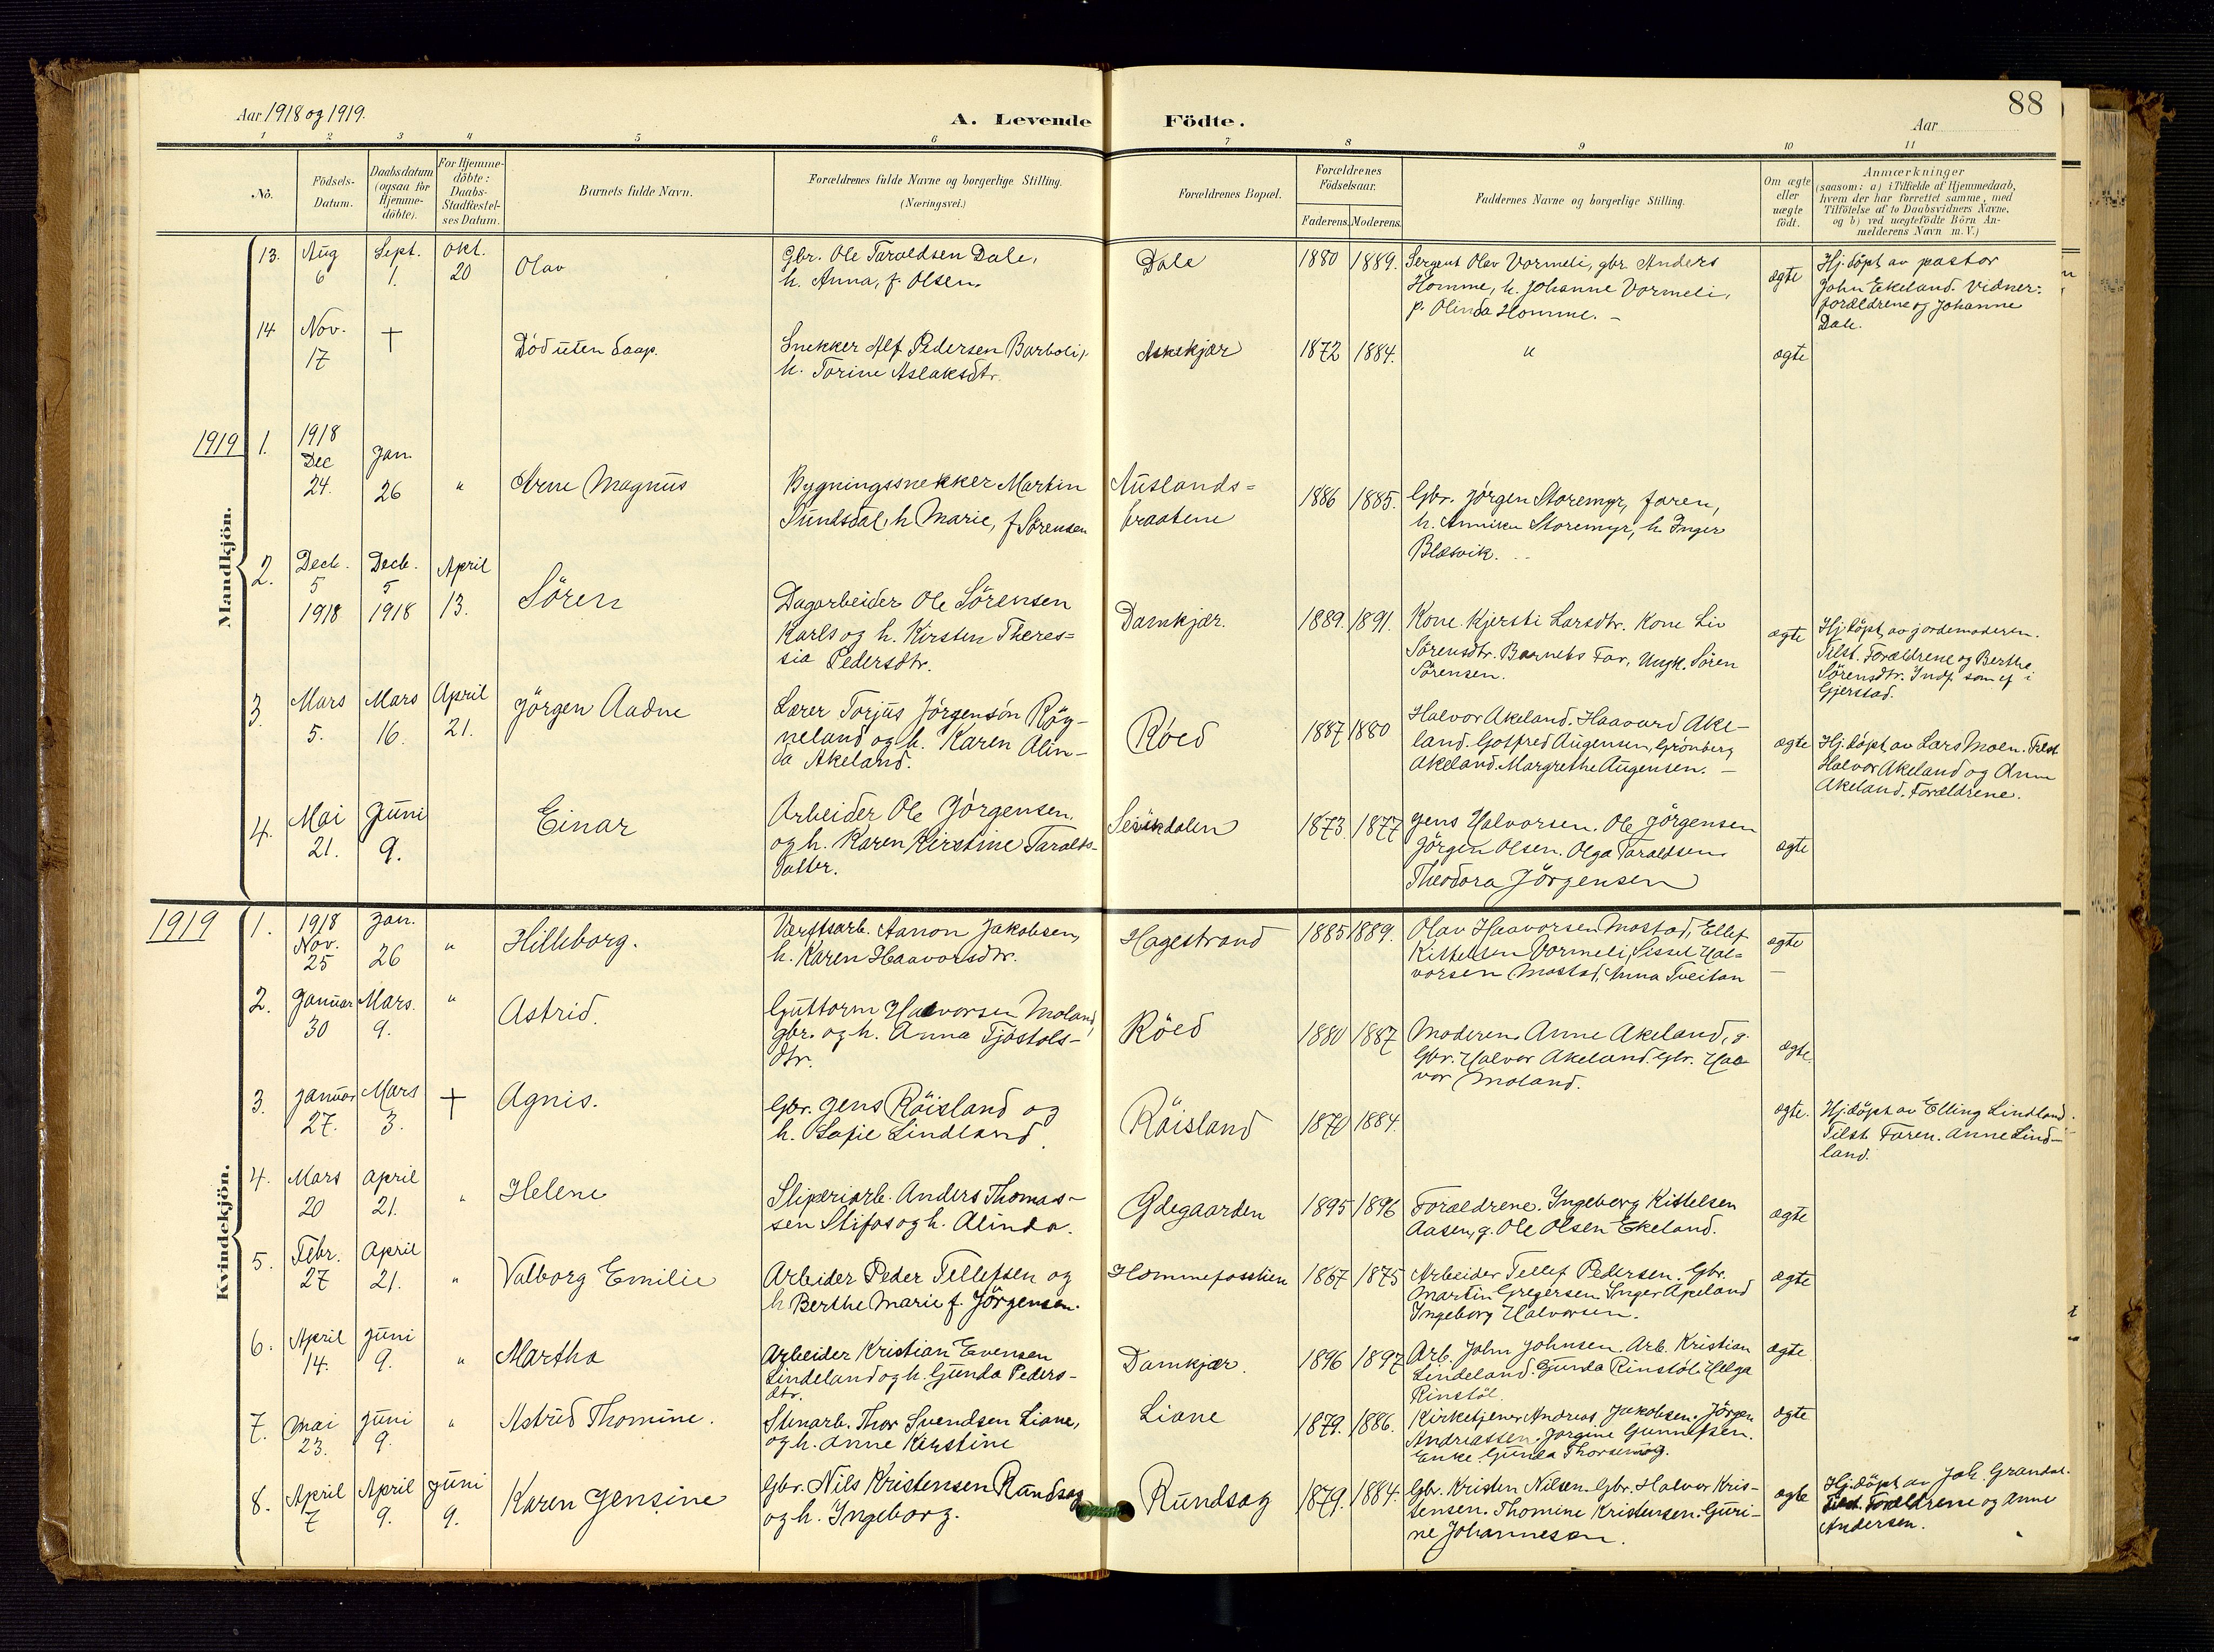 88
Aar 1918 og 1919.
A. Levende Födte.
Aar
1 2 3 4 5 6 7 8 9 10 11
No.
Födsels-Datum.
Daabsdatum (ogsaa for Hjemme-döbte).
For Hjemme-döbte: Daabs-Stadfæstel-ses Datum.
Barnets fulde Navn.
Forældrenes fulde Navne og borgerlige Stilling. (Næringsvei.)
Forældrenes Bopæl.
Forældrenes Födselsaar.
Faderens. Moderens.
Faddernes Navne og borgerlige Stilling.
Om ægte eller uægte födt.
Anmærkninger
(saasom: a) i Tilfælde af Hjemmedaab,
hvem der har forrettet samme, med
Tilföielse af to Daabsvidners Navne,
og b) ved uægtefödte Börn An-
melderens Navn m. V.)
Mandkjön.
13. Aug 6 Sept. 1. Okt. 20 Olav
Gbr. Ole Taraldsen Dale,
h. Anna, f. Olsen.
Dale 1880 1889.
Sergent Olav Vormeli, gbr. Anders
Homme, h. Johanne Vormeli,
p. Olinda Homme. –
ægte
Hj. döpt av pastor
John Ekeland. Vidner:
forældrene og Johanne
Dale.
14 Nov. 17 † Död uten daap.
Snekker Alf Pedersen Barboli,
h. Torine Aslaksdtr.
Askekjær 1872 1884. " ægte
1919
1. 1918 Dec 24. Jan. 26 " Arne Magnus
Bygningssnekker Martin
Sundsdal, h Marie, f Sörensen
Auslands=
braatene
1886 1885.
Gbr. Jörgen Storemyr, faren,
h. Anniken Storemyr, h. Inger
Blæsvik.
2. Decb. 5 1918 Decb. 5 1918 April 13. Sören
Dagarbeider Ole Sörensen
Karls og h. Kirsten Theres=
sia Pedersdtr.
Damkjær. 1889. 1891.
Kone Kjersti Larsdtr. Kone Liv
Sörensdtr. Barnets Far, Ungk. Sören
Sörensen.
ægte
Hj. döpt av jordemoderen.
Tilst. Forældrene og Berthe
Sörensdtr. Indf. som ef i
Gjerstad.
3. Mars 5. Mars 16. April 21. Jörgen Aadne
Lærer Torjus Jörgensön Röy-
neland og h. Karen Alin-
da Akeland.
Röed 1887 1880
Halvor Akeland. Haavard Ake-
land. Gotfred Augensen, Grönberg
Akeland. Margrethe Augensen. –
ægte
Hj. döpt av Lars Moen. Tilst
Halvor Akeland og Anne
Akeland. Forældrene.
4. Mai 21. Juni 9. Einar
Arbeider Ole Jörgensen
og h. Karen Kirstine Taralds-
datter.
1873. 1877
Jens Halvorsen. Ole Jörgensen
Jörgen Olsen. Olga Taraldsen
Theodora Jörgensen
ægte
1919
Kvindekjön.
1. 1918 Nov. 25 Jan. 26 " Hilleborg.
Værftsarb. Aanon Jakobsen,
h. Karen Haavorsdtr.
Hagestrand 1885 1889.
Olav Haavorsen Mostad, Ellef
Kittelsen Vormeli, Sissel Hal=
vorsen Mostad, Anna Tveitan
ægte –
2. Januar 30 Mars. 9. " Astrid.
Guttorm Halvorsen Moland,
gbr. og h. Anna Tjöstols-
dtr.
Röed 1880 1887
Moderen. Anne Akeland, g.
Gbr. Halvor Akeland. Gbr. Haa
vor Moland.
ægte.
3. Januar 27. Mars 3. † Agnis.
Gbr. Jens Röisland og
h. Sofie Lindland.
Röisland 1870 1884.
ægte.
Hj. döpt av Elling Lindland.
Tilst. Faren. Anne Lind-
land.
4. Mars 20 April 21. " Helene
Sliperiarb. Anders Thomas-
sen Stifos og h. Alinda.
Gdegaarden 1895 1896
Forældrene. Ingeborg Kittelsen
Aasen, g. Ole Olsen Ekeland.
ægte
5. Febr. 27 April 21. " Valborg Emilie
Arbeider Peder Tellefsen og
h Berthe Marie f. Jörgensen.
Hommefossheien 1867 1875
Arbeider Tellef Pedersen. Gbr.
Martin Gregersen. Inger Apeland
Ingeborg Halvorsen.
ægte
6. April 14. Juni 9. " Martha
Arbeider Kristian Evensen
Lindeland og h. Gunda Peders-
dtr.
Damkjær. 1896 1897
Arb. John Johnsen. Arb. Kristian
Lindeland. Gunda Rinstöl. Helga
Rinstöl.
ægte
7. Mai 23. Juni 9. " Astrid Thomine.
Stenarb. Thor Svendsen Liane,
og h. Anne Kirstine
Liane 1879. 1886.
Kirketjener Andreas Jakobsen. Jörgen
Andreassen. Jörgine Gunnufsen.
Enke Gunda
ægte
8. April 7 April 9. Juni 9. Karen Jensine
Gbr. Nils Kristensen Rundsag
og h. Ingeborg.
Rundsag 1879. 1884.
Gbr. Kristen Nilsen. Gbr. Halvor Kris-
tensen. Thomine Kristensen. Guri-
ne Johannesen.
ægte
Hj. döpt av Joh. Grandal.
Tilst. Forældrene og Anne
Andersen.